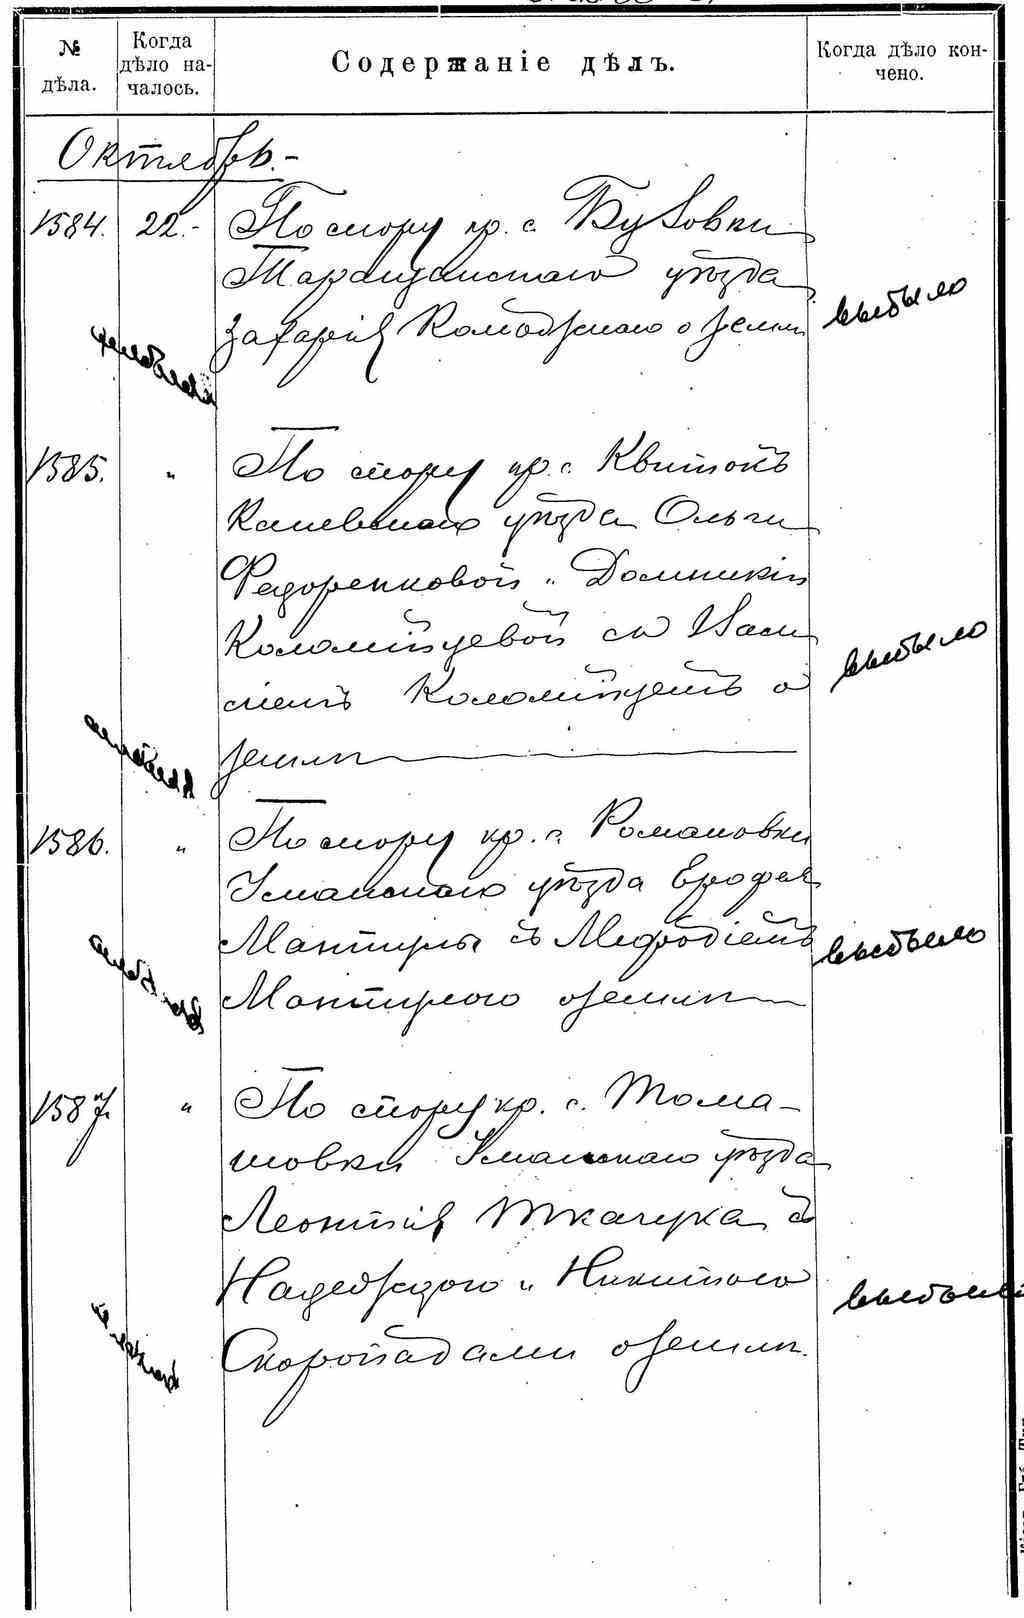 № дѣла.
Когда дѣло на-
чалось.
Содержаніе дѣлъ.
Когда дѣло кон-
чено.
Октябрь.-
1584. 22.- По спору кр. с. Бузовки
Таращанскаго уѣзда
Захарія о земли
выбыло
1585. " По спору кр. с. Квитокъ
Каневскаго уѣзда Ольги
Федоренковой и Домникіи
Коломійцевой съ Васи
ліемъ Коломійцемъ о
земли
выбыло
выбыло
1586. " По спору кр. с. Романовки
Уманскаго уѣзда Ерофея
Мантуры съ Мефодіемъ
Мантурою о земли
выбыло
выбыло
1587. " По спору кр. с. Тома-
шовки Уманскаго уѣзда
Леонтія Ткачука съ
и Никитою
Скоропадами о земли.
выбыло